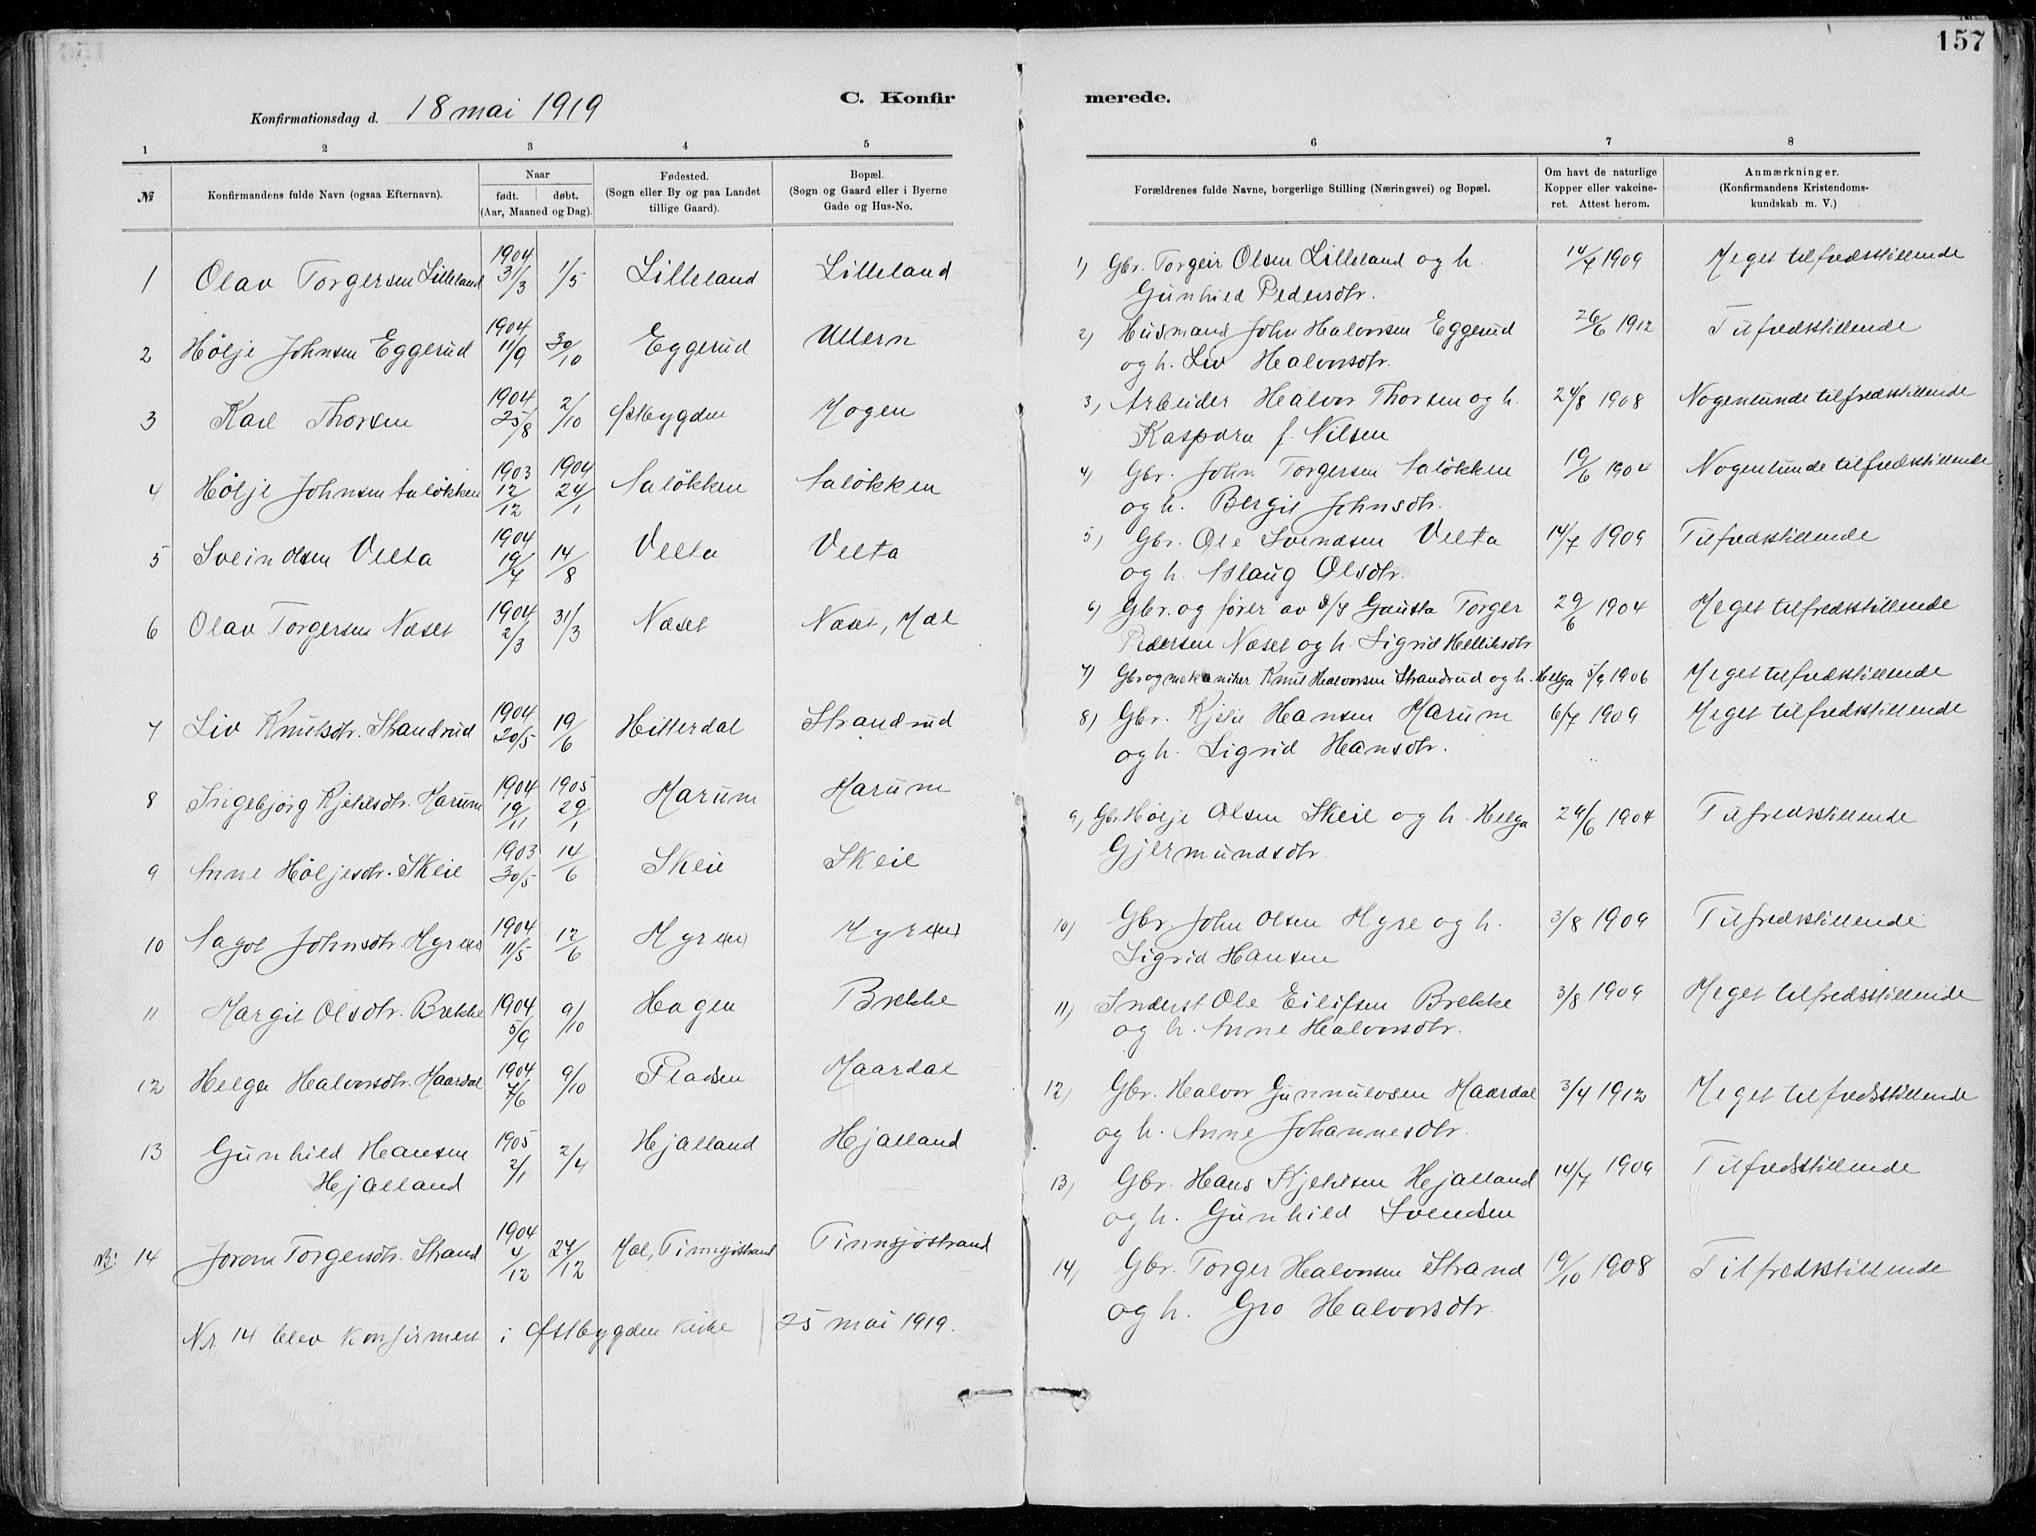 157
C. Konfir
merede.
Konfirmationsdag d. 18 mai 1919
1 2 3 4 5
№ Konfirmandens fulde Navn (ogsaa Efternavn). Naar født. døbt. (Aar, Maaned og Dag). Fødested. (Sogn eller By og paa Landet tillige Gaard). Bopæl. (Sogn og Gaard eller i Byerne Gade og Hus-No.
1 Olav Torgersen Lilleland 1904 31/3 1/5 Lilleland Lilleland
2 Hølje Johnsen Eggerud 1904 11/9 30/10 Eggerud Ullern
3 Karl Thorsen 1904 25/8 2/10 Østbygden Mogen
4 Hølje Johnsen Aaløkken 1903 12/12 1904 24/1 Aaløkken Aaløkken
5 Svein Olsen Veeta 1904 19/7 14/8 Veeta Veeta
6 Olav Torgersen Næset 1904 2/3 31/3 Næset Næset, Mæl
7 Liv Knutsdtr. Strandrud 1904 20/5 19/6 Hitterdal Strandrud
8 Ingebjørg Kjetilsdtr. Marum 1904 19/11 1905 29/1 Marum Marum
9 Anne Høljesdtr. Skeie 1903 30/5 14/6 Skeie Skeie
10 Aagot Johnsdtr. Myre(n) 1904 11/5 12/6 Myre(n) Myre(n)
11 Margit Olsdtr. Brekke 1904 5/9 9/10 Hagen Brekke
12 Helga Halvorsdtr. Maardal 1904 7/6 9/10 Pladsen Maardal
13 Gunhild Hansen Hejalland 1905 2/1 2/4 Hjalland Hejalland
NB! 14 Joron Torgersdtr. Strand 1904 4/12 27/12 Mæl, Tinnsjøstrand Tinnsjøstrand
Nr. 14 blev konfirmert i Østbygden kirke 25 mai 1919.
6 7 8
Forældrenes fulde Navne, borgerlige Stilling (Næringsvei) og Bopæl. Om havt de naturlige Kopper eller vakcineret. Attest herom. Anmærkninger. (Konfirmandens Kristendomskundskab m. V.)
1) Gbr. Torgeir Olsen Lilleland og h. 14/7 1909 Meget tilfredsstillende
Gunhild Pedersdtr.
2) Husmand John Halvorsen Eggerud 26/6 1912 Tilfredsstillende
og h. Liv Halvorsdtr.
3) Arbeider Halvor Thorsen og h. 24/8 1908 Nogenlunde tilfredsstillende
Kaspara f. Nilsen
4) Gbr. John Torgersen Aaløkken 19/6 1904 Nogenlunde tilfredsstillende
og h. Bergit Johnsdtr.
5) Gbr. Ole Svendsen Veeta 14/7 1909 Tilfredsstillende
og h. Aslaug Olsdtr.
6) Gbr. og fører av d/s Gausta Torger 29/6 1904 Meget tilfredsstillende
Pedersen Næset og h. Sigrid Helliksdtr
7) Gbr og mekaniker Knut Halvorsen Strandrud og h. Helga 5/9 1906 Meget tilfredsstillende
8) Gbr. Kjetil Hansen Marum 6/7 1909 Meget tilfredsstillende
og h. Sigrid Hansdtr.
9) Gbr. Hølje Olsen Skeie og h. Helga 29/6 1904 Tilfredsstillende
Gjermundsdtr.
10) Gbr John Olsen Myre og h. 3/8 1909 Tilfredsstillende
Sigrid Hansen
11) Inderst Ole Eilifsen Brekke 3/8 1909 Meget tilfredsstillende
og h. Anne Halvorsdtr.
12) Gbr. Halvor Gunnulvsen Maardal 3/4 1912 Meget tilfredsstillende
og h. Anne Johannesdtr.
13) Gbr. Hans Kjetilsen Hejalland 14/7 1909 Tilfredsstillende
og h. Gunhild Svendsen
14) Gbr. Torger Halvorsen Strand 19/10 1908 Tilfredsstillende
og h. Gro Halvorsdtr.